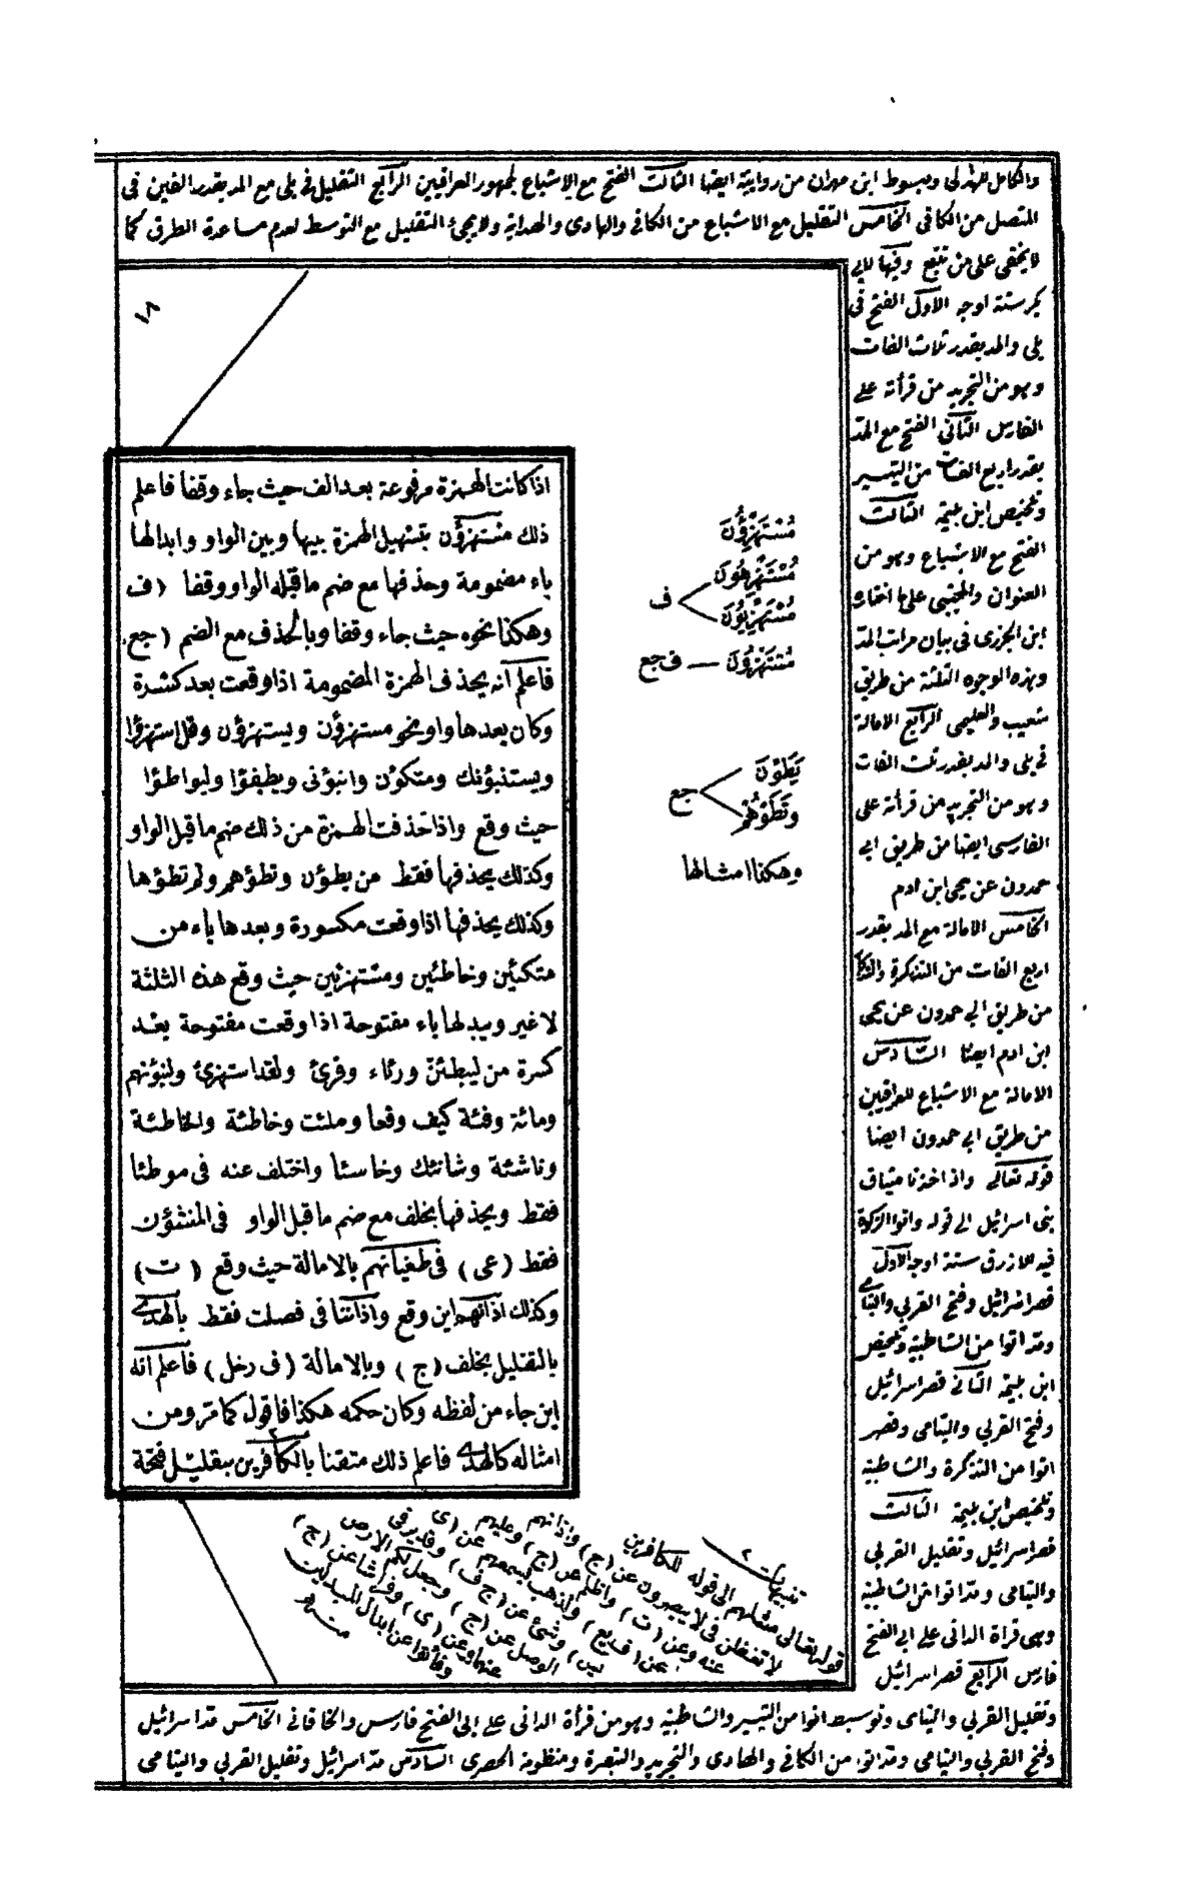 والكامل للهذلى ومبسوط ابن مهران من روايتيه ايضا الثالث الفتح مع الاشباع لجمهور العراقيين الرابع التقليل فى بلى مع المد بقدر الفين فى
المتصل من الكافى الخامس التقليل مع الاشباع من الكافى والهادى والهداية ولا يجئ التقليل مع التوسط لعدم مساعدة الطرق كما
لا يخفى على من تتبع وفيها لابى
بكر ستة اوجه الاول الفتح فى
بلى والمد بقدر ثلاث الفات
وهو من التجريد من قرأته على
الفارسى الثانى الفتح مع المد
بقدر اربع الفات من التيسير
وتلخيص ابن بليمة الثالث
الفتح مع الاشباع وهو من
العنوان والمجتبى على ما اختاره
ابن الجزرى فى بيان مراتب المد
وهذه الوجوه الثلثة من طريق
شعيب والعليمى الرابع الامالة
فى بلى والمد بقدر ثلث الفات
وهو من التجريد من قرأته على
الفارسى ايضا من طريق ابى
حمدون عن يحيى ابن ادم
الخامس الامالة مع المد بقدر
اربع الفات من التذكرة
من طريق ابى حمدون عن يحيى
ابن ادم ايضا السادس
الامالة مع الاشباع للعراقيين
من طريق ابى حمدون ايضا
قوله تعالى واذ اخذنا ميثاق
بنى اسرائيل الى قوله واتوا الزكوة
فيه للازرق ستة اوجه الاول
قصر اسرائيل وفتح القربى واليتامى
ومد اتوا من الشاطبية وتلخيص
ابن بليمة الثانى قصر اسرائيل
وفتح القربى واليتامى وقصر
اتوا من التذكرة والشاطبية
وتلخيص ابن بليمة الثالث
قصر اسرائيل وتقليل القربى
واليتامى ومد اتوا من الشاطبية
وهى قراة الدانى على ابى الفتح
فارس الرابع قصر اسرائيل
وتقليل القربى واليتامى وتوسيط اتوا من التيسير والشاطبية وهو من قرأة الدانى على ابى الفتح فارس والخاقانى الخامس مد اسرائيل
وفتح القربى واليتامى ومد اتوا من الكافى والهادى والتجريد والتبصرة ومنظومة الحصرى السادس مد اسرائيل وتقليل القربى واليتامى
١٨
اذا كانت الهمزة مرفوعة بعد الف حيث جاء وقفا فاعلم
ذلك مستهزؤن بتسهيل الهمزة بينها وبين الواو وابدالها
ياء مضمومة وحذفها مع ضم ما قبله الواو وقفا (ف
وهكذا نحوه حيث جاء وقفا وبالحذف مع الضم (جع)
فاعلم انه يحذف الهمزة المضمومة اذا وقعت بعد كسرة
وكان بعدها واو نحو مستهزؤن ويستهزؤن وقل استهزؤا
ويستنبؤنك ومتكؤن وانبؤنى ويطفؤا وليواطؤا
حيث وقع واذا حذفت الهمزة من ذلك ضم ما قبل الواو
وكذلك يحذفها فقط من يطؤن وتطؤهم ولم تطؤها
وكذلك يحذفها اذا وقعت مكسورة وبعدها ياء من
متكئين وخاطئين ومستهزئين حيث وقع هذه الثلثة
لا غير ويبدلها ياء مفتوحة اذا وقعت مفتوحة بعد
كسرة من ليبطئن ورئاء وقرئ ولقد استهزئ ولنبؤنهم
ومائة وفئة كيف وقعا وملئت وخاطئة والخاطئة
وناشئة وشانئك وخاسئا واختلف عنه فى موطئا
فقط ويحذفها بخلف مع ضم ما قبل الواو فى المنشؤن
فقط (عى) فى طغيانهم بالامالة حيث وقع (ت)
وكذلك اذانهم اين وقع واذاننا فى فصلت فقط بالهدى
بالتقليل بخلف (ج) وبالامالة (ف رخل) فاعلم انه
اين جاء من لفظه وكان حكمه هكذا فاقول كما مر ومن
امثاله كالهدى فاعلم ذلك متقنا بالكافرين بتقليل فتحة
مُسْتَهْزِؤُنَ
مُسْتَهْزِهُونَ
مُسْتَهْزِيُونَ
ف
مُسْتَهْزُونَ — ف جع
يَطَوْنَ
وتَطَوْهُمْ
جع
وهكذا امثالها
تنبيهات ٢
قوله تعالى مثلهم الى قوله للكافرين
لا تغفلن فى لا يبصرون عن (ج) واذانهم
عنه وعن (ت) واظلم عن (ج) وعليهم